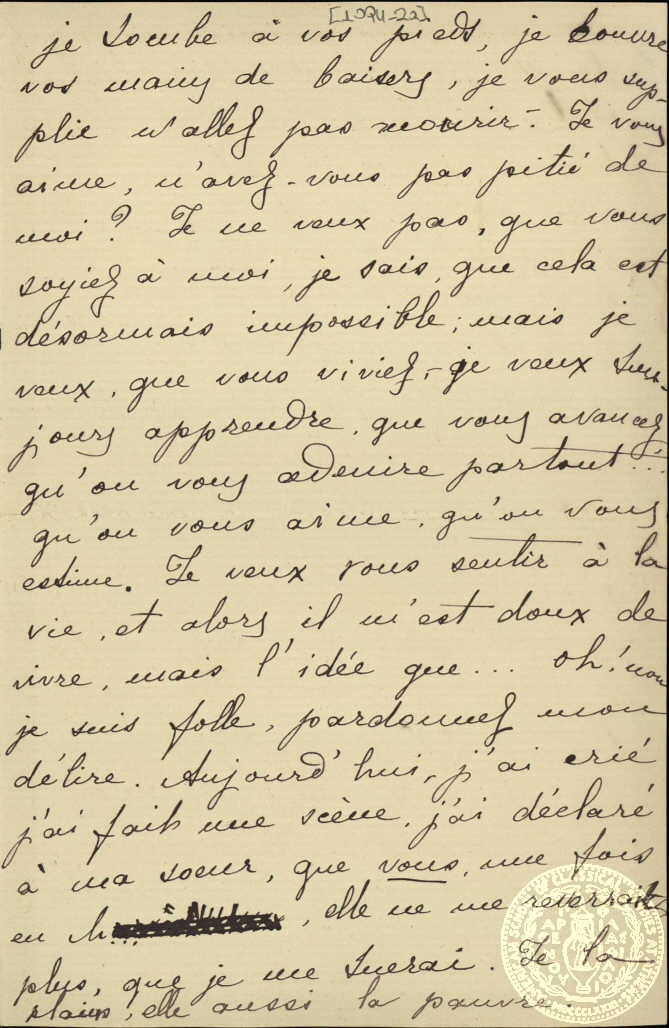 [1894-22].
je tombe à vos pieds, je couvre
vos mains de baisers, je vous sup-
plie n'allez pas mourir. - Je vous
aime, n'avez-vous pas pitié de
moi? Je ne veux pas, que vous
soyiez à moi, je sais, que cela est
désormais impossible; mais je
veux, que vous viviez, - je veux tou-
jours apprendre, que vous avancez
qu'on vous admire partout...
qu'on vous aime, qu'on vous
estime. Je veux vous sentir à la
vie, et alors il m'est doux de
vivre, mais l'idée que... oh! non
je suis folle, pardonnez mon
délire. Aujourd'hui, j'ai crié
j'ai fait une scène, j'ai déclaré
à ma soeur, que vous, une fois
en , elle ne me reverrait
plus, que je me tuerai. Je la
plains, elle aussi la pauvre.